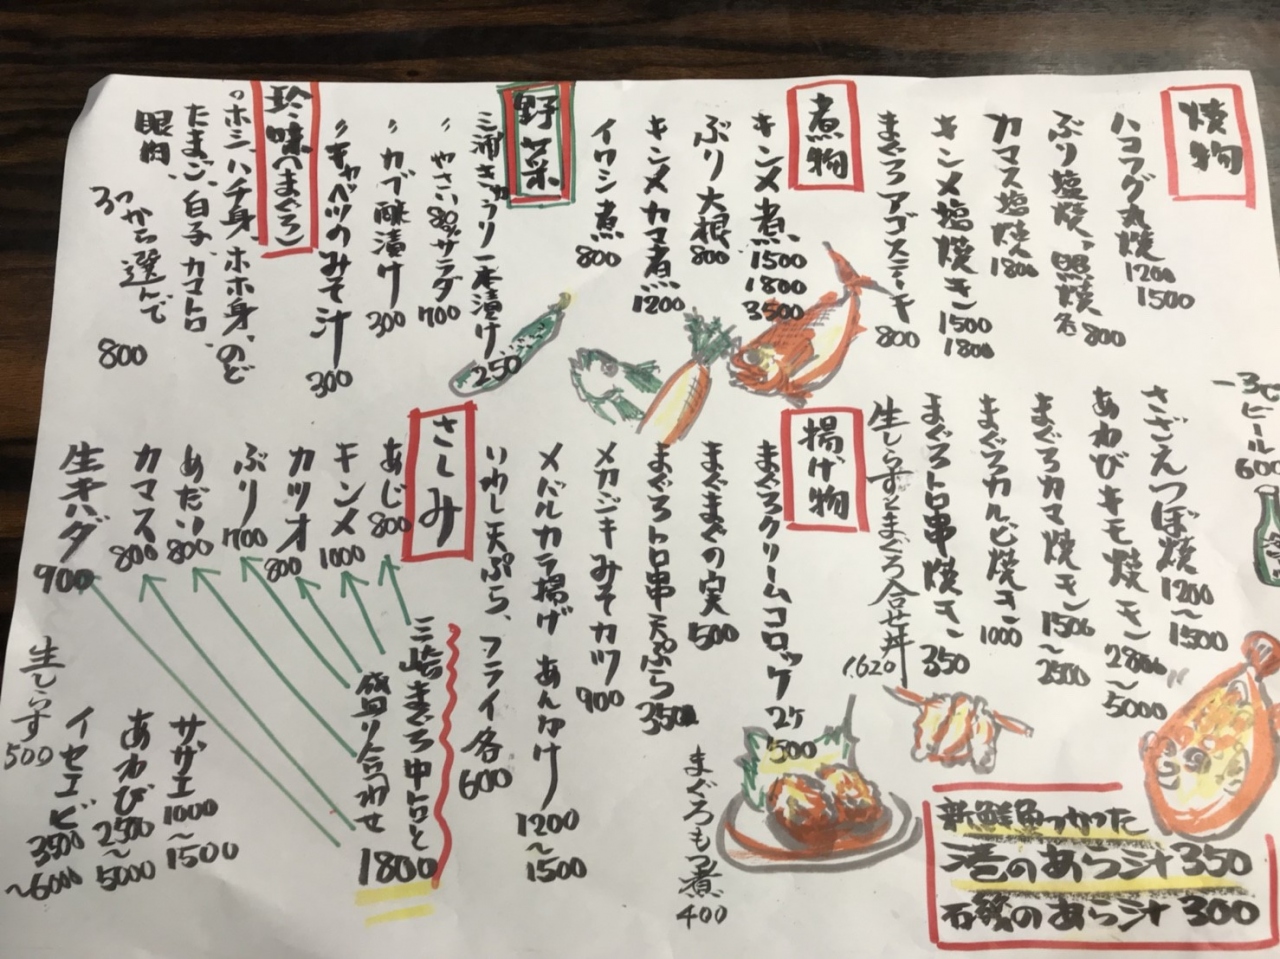 焼物
ハコフグ丸焼 1200 1500
ぶり塩焼、照焼各800
カマス塩焼 1800
キンメ塩焼キ 1500 1800
まぐろアゴステーキ 800
煮物
キンメ煮 1500 1800 3500
ぶり大根 800
キンメカマ煮 1200
イワシ煮 800
野菜
三浦きゅうり一本漬け 250
〃 やさいサラダ 700
〃 カブ酢漬け 300
〃 キャベツのみそ汁 300
珍味(まぐろ)
ホシ、ハチ身、ホホ身、のど
たまご、白子、カマトロ、
眼肉、
3つから選んで 800
ビール 600
さざえつぼ焼 1200〜1500
あわびキモ焼キ 2800〜5000
まぐろカマ焼キ 1500〜2500
まぐろカルビ焼キ 1000
まぐろトロ串焼キ 350
生しらすとまぐろ合せ丼 1.620
揚げ物
まぐろクリームコロッケ 2ケ 500
まぐまぐの実 500
まぐろトロ串天ぷら 350
メカジキみそカツ 900
メバルカラ揚げ あんかけ 1200〜1500
いわし天ぷら、フライ各 600
まぐろもつ煮 400
さしみ
あじ 800
キンメ 1000
カツオ 800
ぶり 700
めだい 800
カマス 800
生キハダ 900
三崎まぐろ中トロと
盛り合わせ 1800
サザエ 1000〜1500
あわび 2500〜5000
イセエビ 3500〜6000
生しらす 500
新鮮魚つかった
港のあら汁 350
のあら汁 300